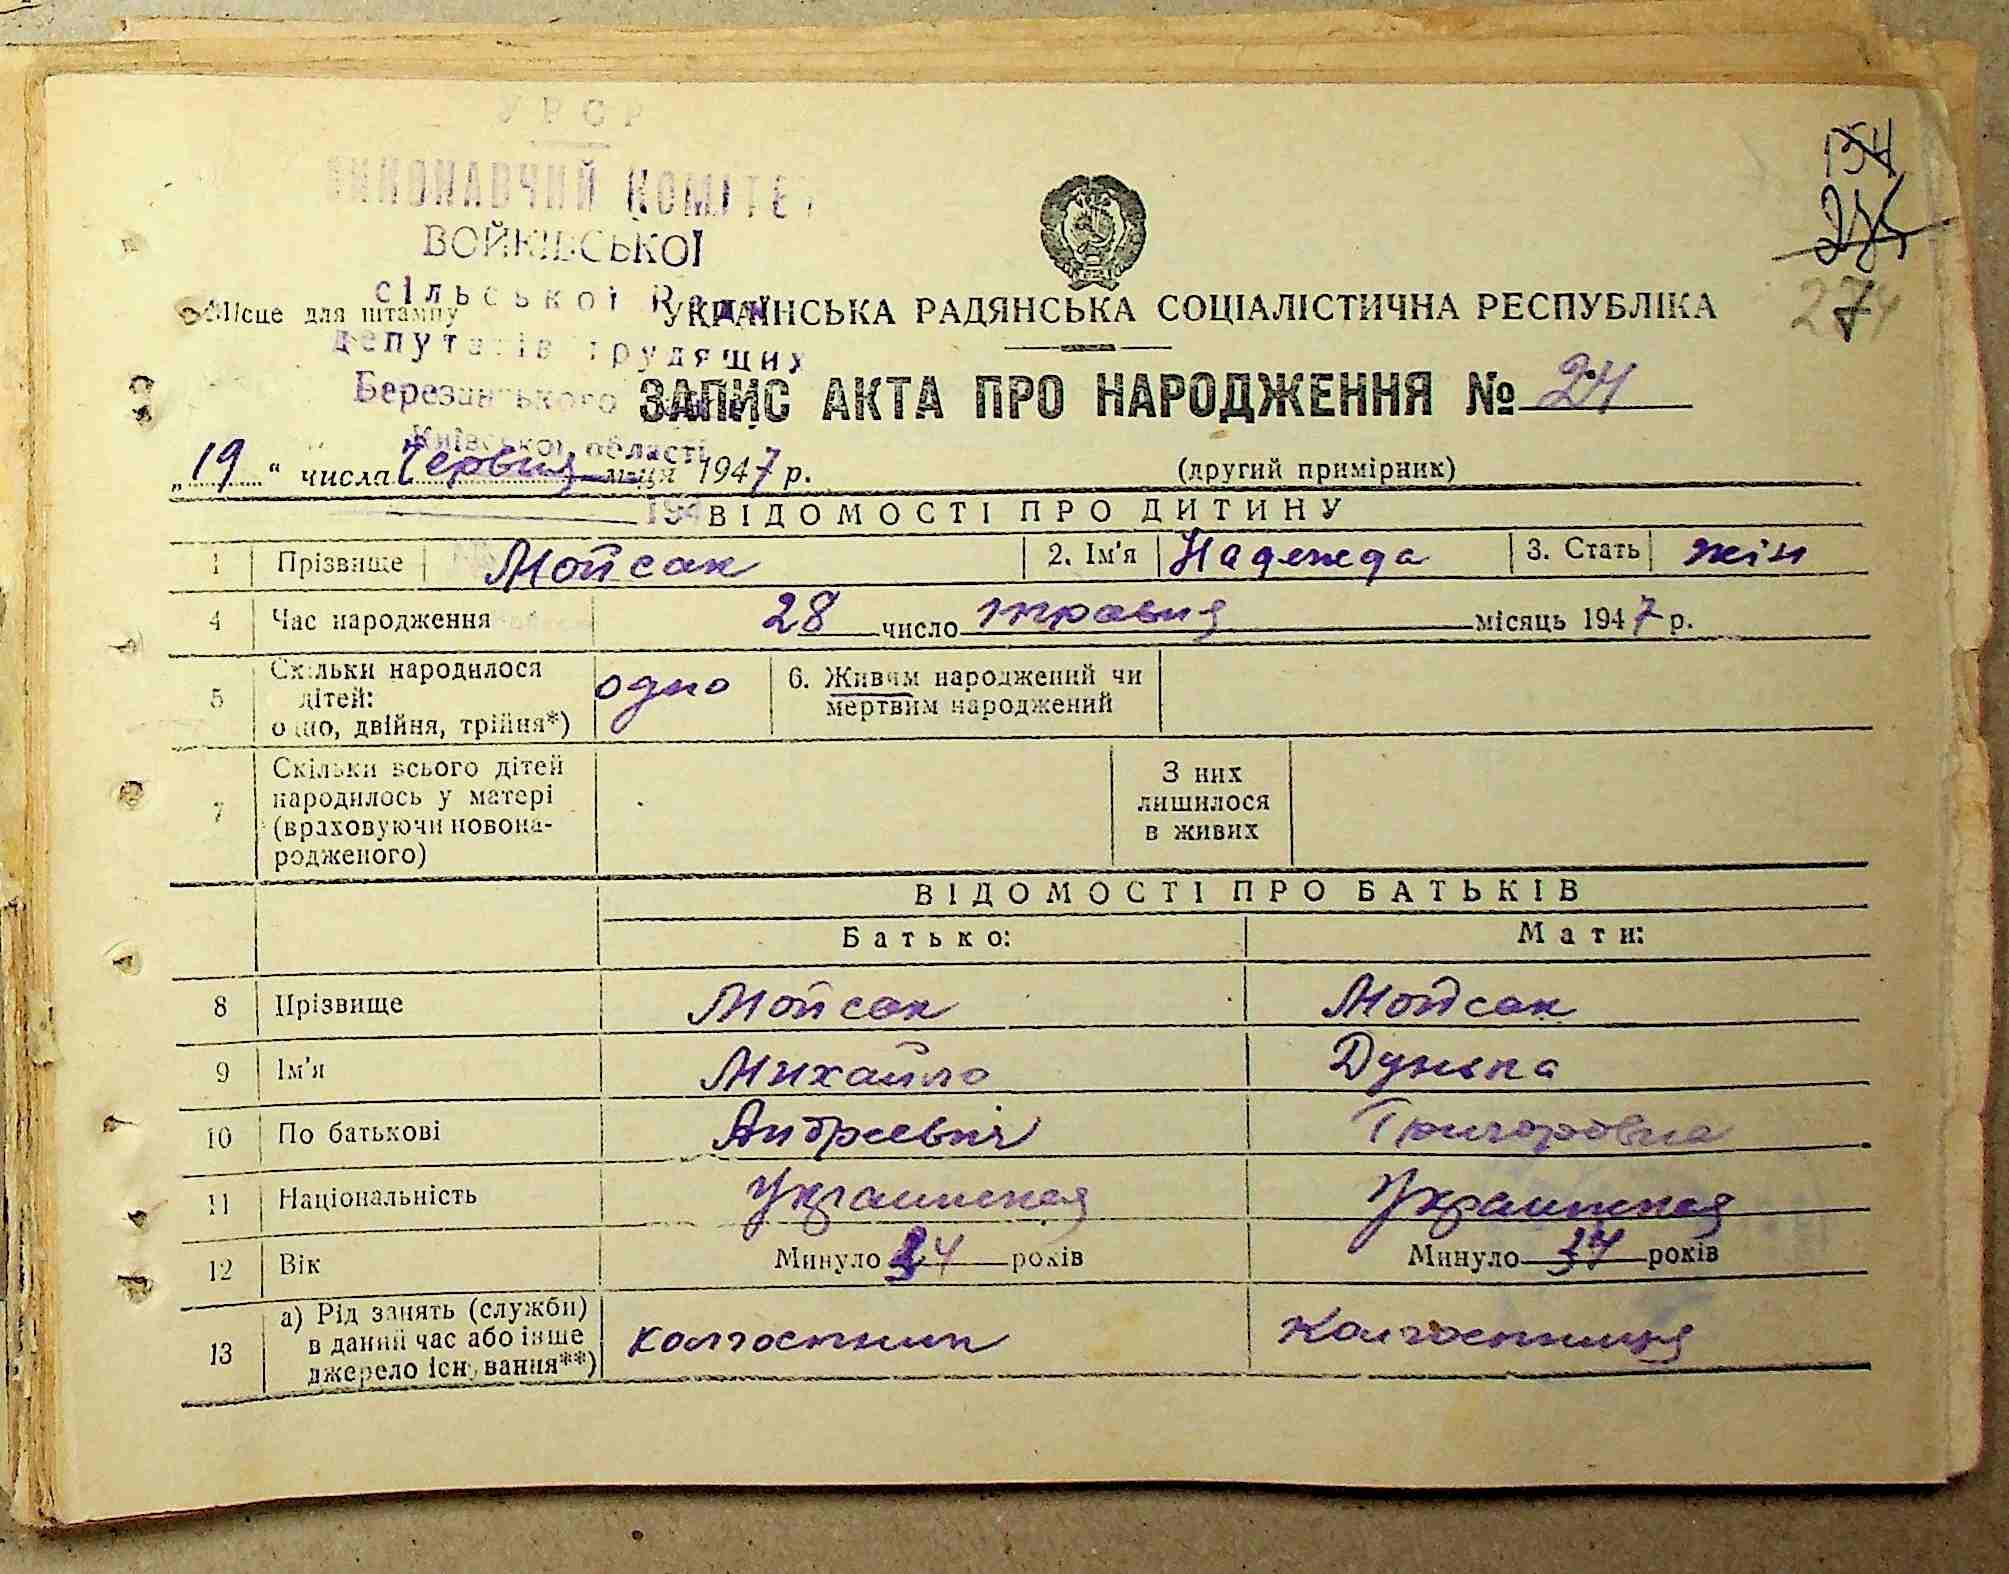 УРСР
ВИКОНАВЧИЙ КОМІТЕТ
ВОЙКІВСЬКОЇ
сільської Ради
депутатів трудящих
Березанського
Київської області
194
154
275
274
Місце для штампу
УКРАЇНСЬКА РАДЯНСЬКА СОЦІАЛІСТИЧНА РЕСПУБЛІКА
ЗАПИС АКТА ПРО НАРОДЖЕННЯ № 24
„19“ числа Червня м-ця 1947 р. (другий примірник)
ВІДОМОСТІ ПРО ДИТИНУ
1 Прізвище Мойсак 2. Ім'я Надежда 3. Стать жін
4 Час народження 28 число травня місяць 1947 р.
5 Скільки народилося дітей: одно, двійня, трійня*) одно 6. Живим народжений чи мертвим народжений
7 Скільки всього дітей народилось у матері (враховуючи новонародженого) З них лишилося в живих
ВІДОМОСТІ ПРО БАТЬКІВ
Батько: Мати:
8 Прізвище Мойсак Мойсак
9 Ім'я Михайло Дунька
10 По батькові Андреевич Григоровна
11 Національність Украинская Украинская
12 Вік Минуло 34 років Минуло 34 років
13 а) Рід занять (служби) в даний час або інше джерело існування**) колгоспник колгоспниця